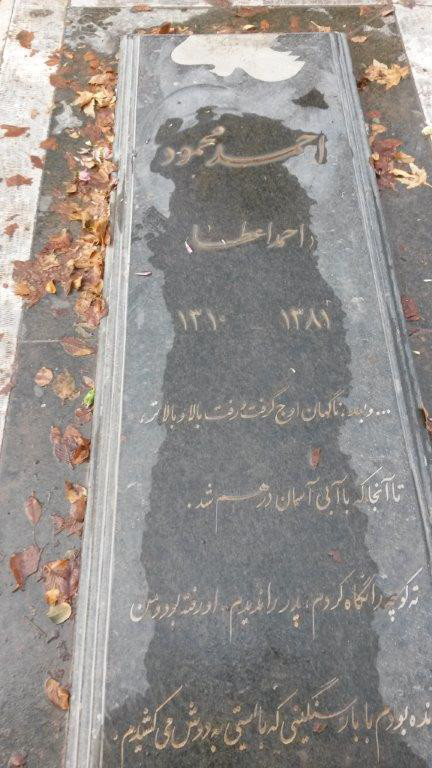 احمد محمود
(احمد اعطا
۱۳۱۰ ۱۳۸۱
... و بعد، ناگهان اوج گرفت و رفت بالا و بالاتر،
تا آنجا که با آبی آسمان درهم شد.
ته کوچه را نگاه کردم، پدر را ندیدم. او رفته بود و من
مانده بودم با بار سنگینی که بایستی به دوش می‌کشیدم.